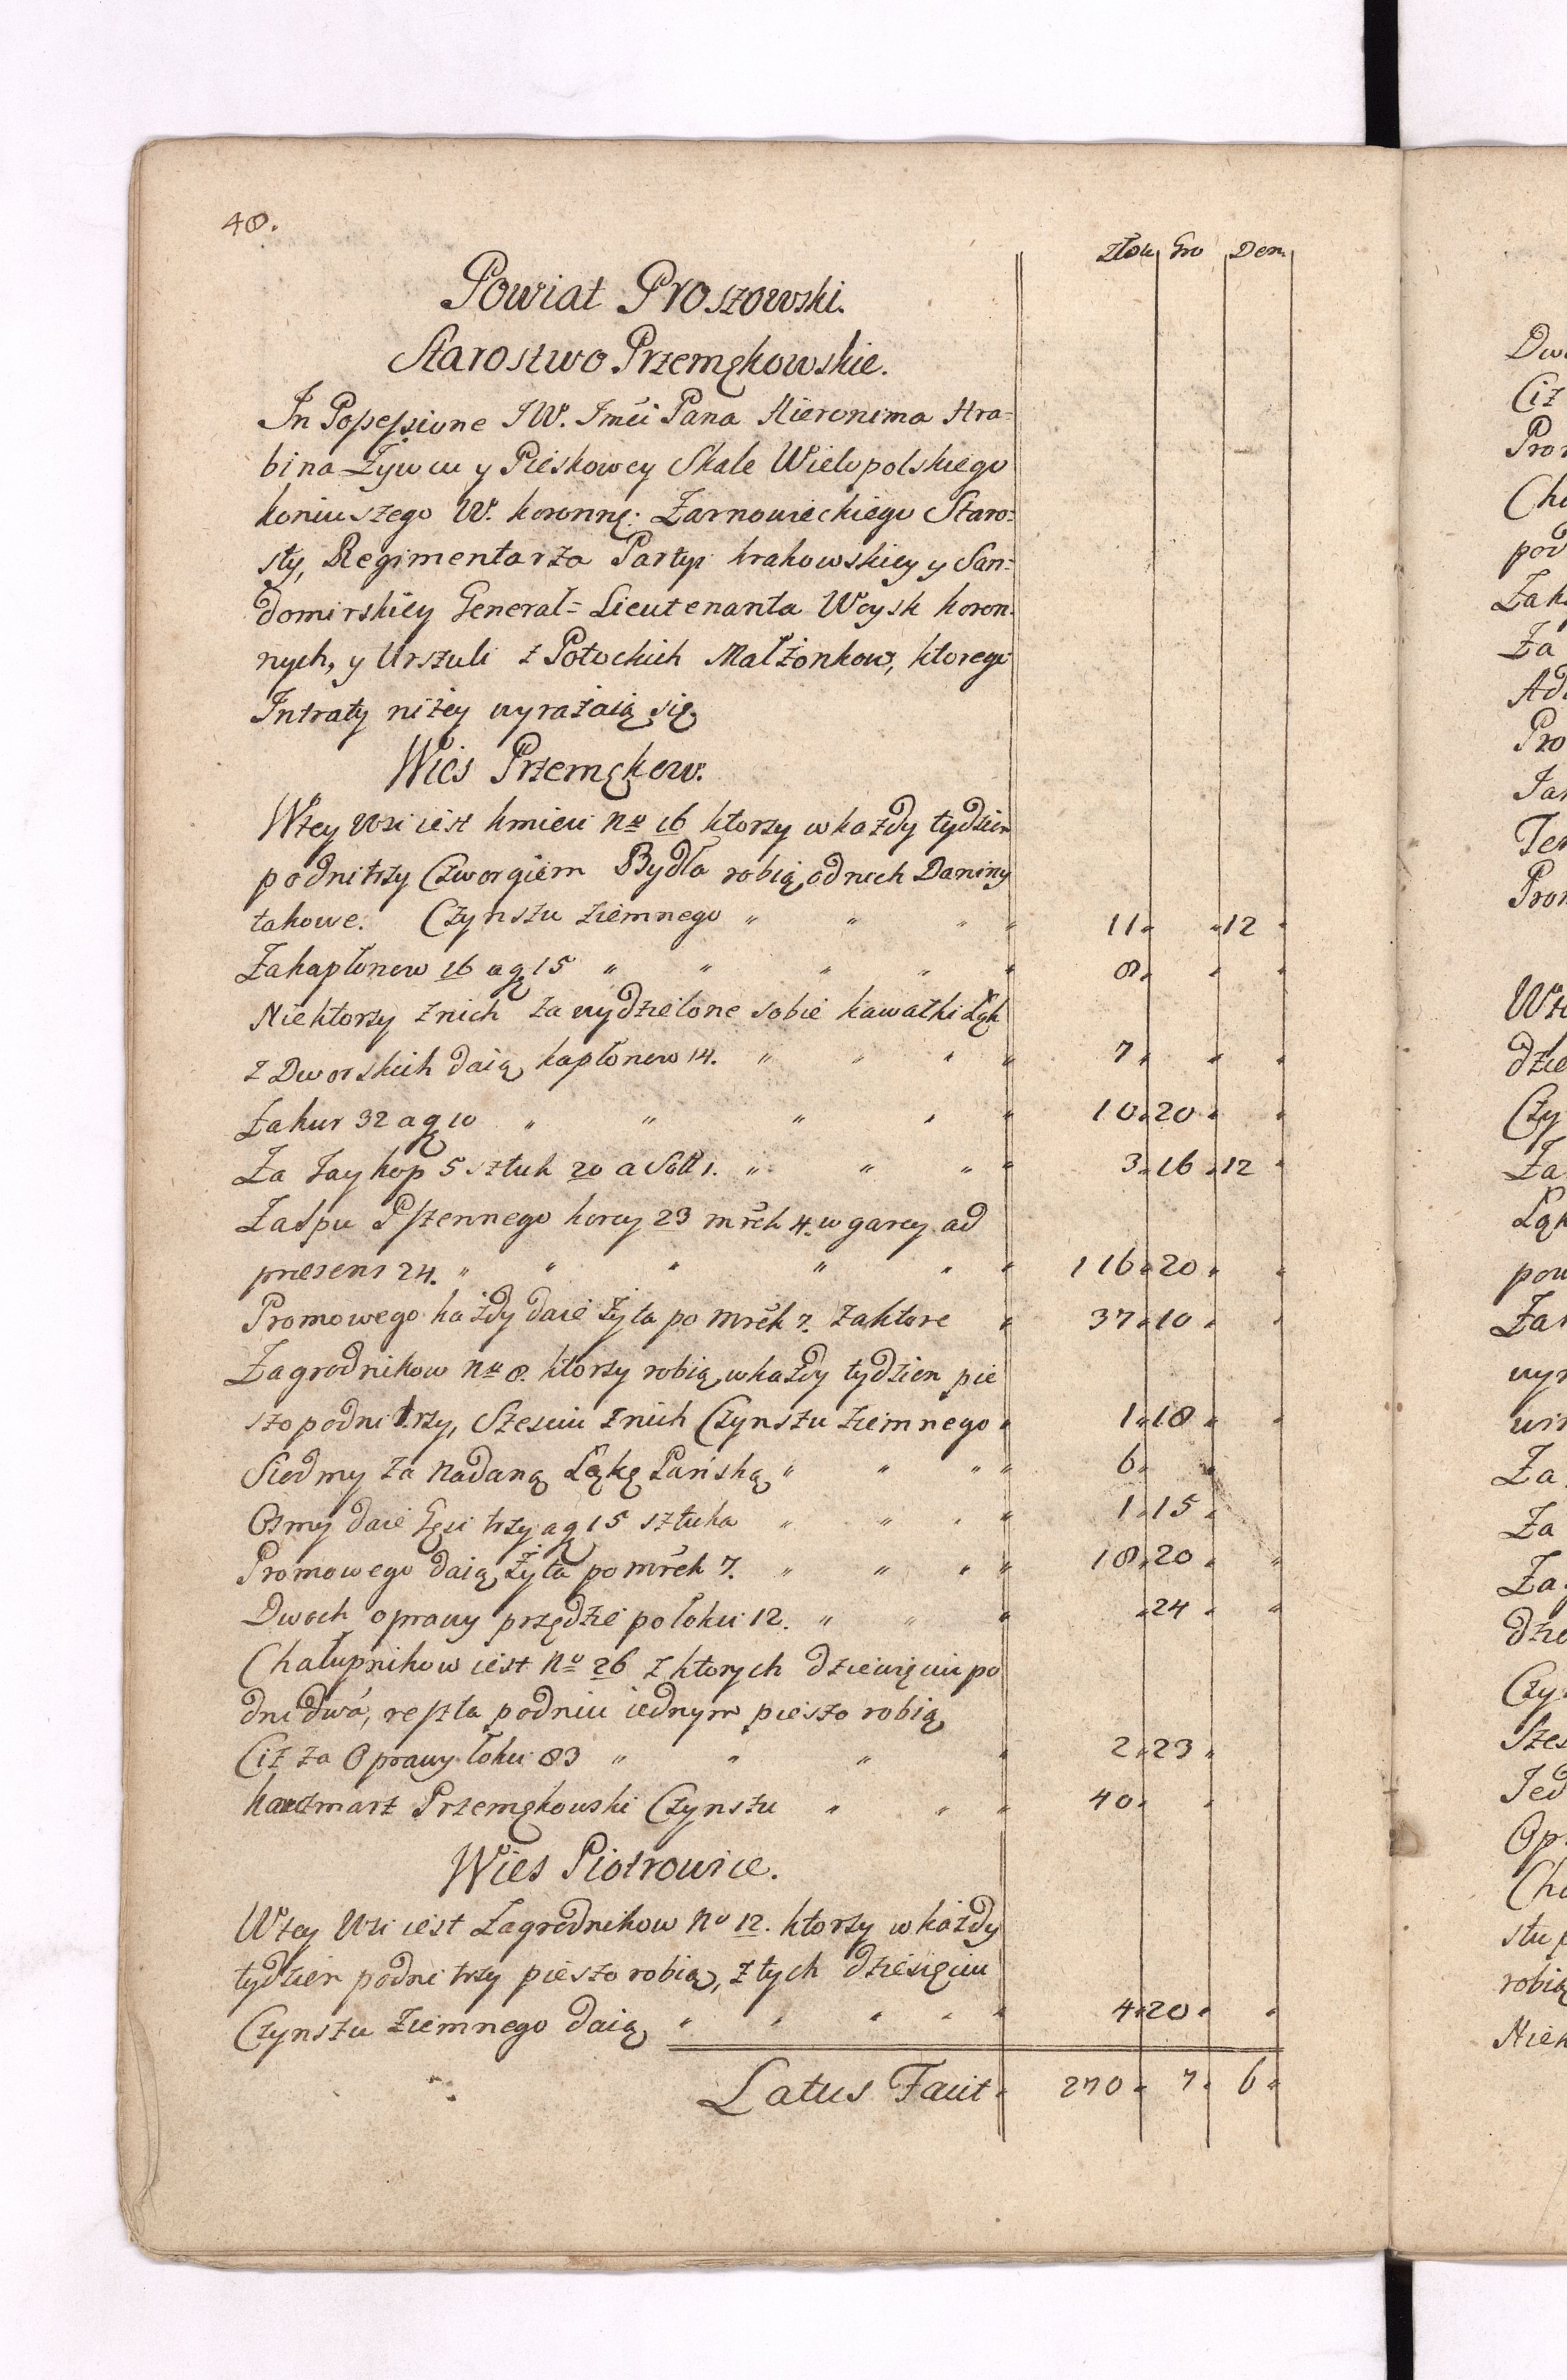 48.
Złote Gro Den.
Powiat Proszowski.
Starostwo Przemękowskie.
In Possessione JW. Jmći Pana Hieronima Hra=
bi na Żywcu y Pieskowey Skale Wielopolskiego
koniuszego W. koronne: Żarnowieckiego Staro=
sty, Regimentarza Partyi krakowskiey y San=
domirskiey General= Lieutenanta Woysk koron:
nych, y Urszuli z Potockich Małżonkow, ktorego
Intraty niżey wyrażaią się.
Wies Przemękow.
Wtey Wsi iest kmieci No 16 ktorzy w każdy tydzien
po dni trzy Czworgiem Bydła robią, od nich Daniny
takowe. Czynszu ziemnego " " " " 11 " " 12 "
Za kapłonow 16 a g 15 " " " " " 8 " " "
Niektorzy z nich za wydzielone sobie kawałki Łąk
z Dworskich daią kapłonow 14. " " " " 7 " " "
Za kur 32 a g 10 " " " " " 10 " 20 " "
Za Jay kop 5 sztuk 20 a Soll 1. " " " " 3 " 16 " 12 "
Za Spu Pszennego korcy 23 mřek 4. w garcy ad
præsens 24. " " " " " " 116 " 20 " "
Promowego każdy daie Żyta po mřek 7. za ktore " 37 " 10 " "
Zagrodnikow No 8. ktorzy robią w każdy tydzien pie
szo po dni trzy, Szesciu z nich Czynszu ziemnego " 1 " 18 " "
Siedmy za nadaną Łąkę Pańską " " " " 6 " "
Osmy daie Gęsi trzy a g 15 sztuka " " " " 1 " 15 "
Promowego daią Żyta po mřek 7. " " " " 18 " 20 " "
Dwoch oprawy przędzie po łokci 12. " " " " 24 " "
Chałupnikow iest No 26 z ktorych dziewięciu po
dni dwá, reszta po dniu iednym pieszo robią
Ciż za Oprawy łokci 83 " " " " 2 " 23 "
karczmarz Przemękowski Czynszu " " " 40 " "
Wies Piotrowice.
Wtey Wsi iest Zagrodnikow No 12. ktorzy w każdy
tydzien po dni trzy pieszo robią, z tych dziesięciu
Czynszu Ziemnego daią " " " " " 4 " 20 " "
Latus Facit " 270 " 7 " 6 "
Ciż
Czy
Za
Za
Za
Za
robią